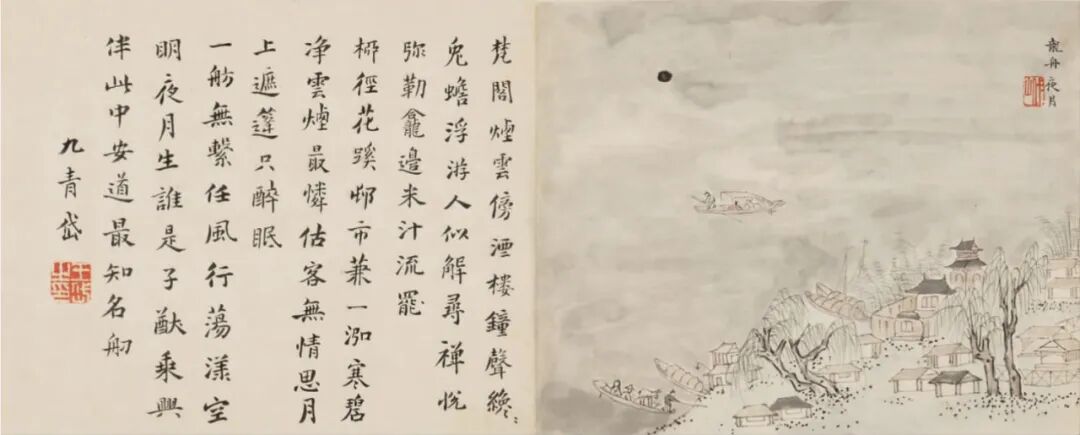 舟夜月
梵閣煙雲傍酒樓鐘聲
兔蟾浮游人似解尋禪悅
弥勒龕邊米汁流罷
桺徑花蹊邨市兼一泓寒碧
净雲煙最憐估客無情思月
上遮篷只醉眠
一舫無繫任風行蕩漾空
明夜月生誰是子猷乘興
伴此中安道最知名舠
九青岱